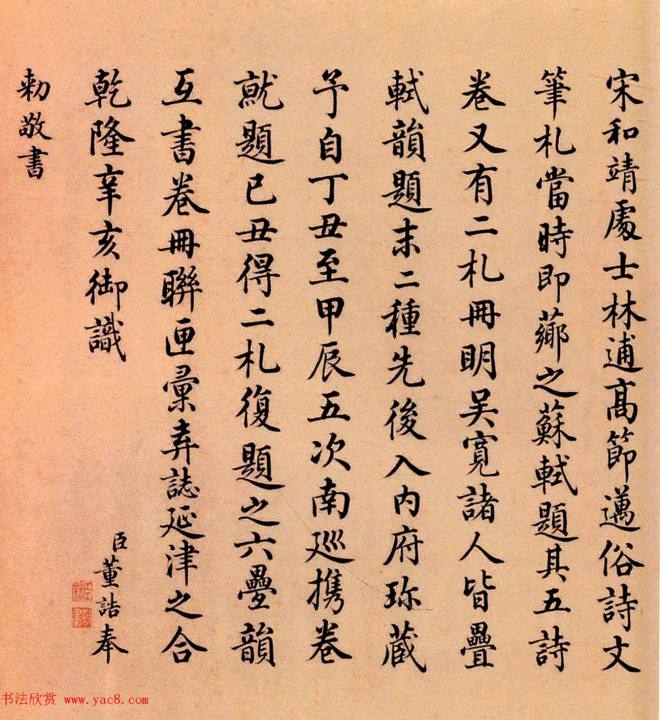 宋和靖處士林逋高節邁俗詩文
筆札當時即薌之蘇軾題其五詩
卷又有二札冊明吴寬諸人皆疊
軾韻題末二種先後入内府珎蔵
予自丁丑至甲辰五次南廵攜卷
就題已丑得二札復題之六疊韻
互書卷冊聯匣彙弆誌延津之合
乾隆辛亥御識
臣董誥奉
勅敬書
书法欣赏 www.yac8.com